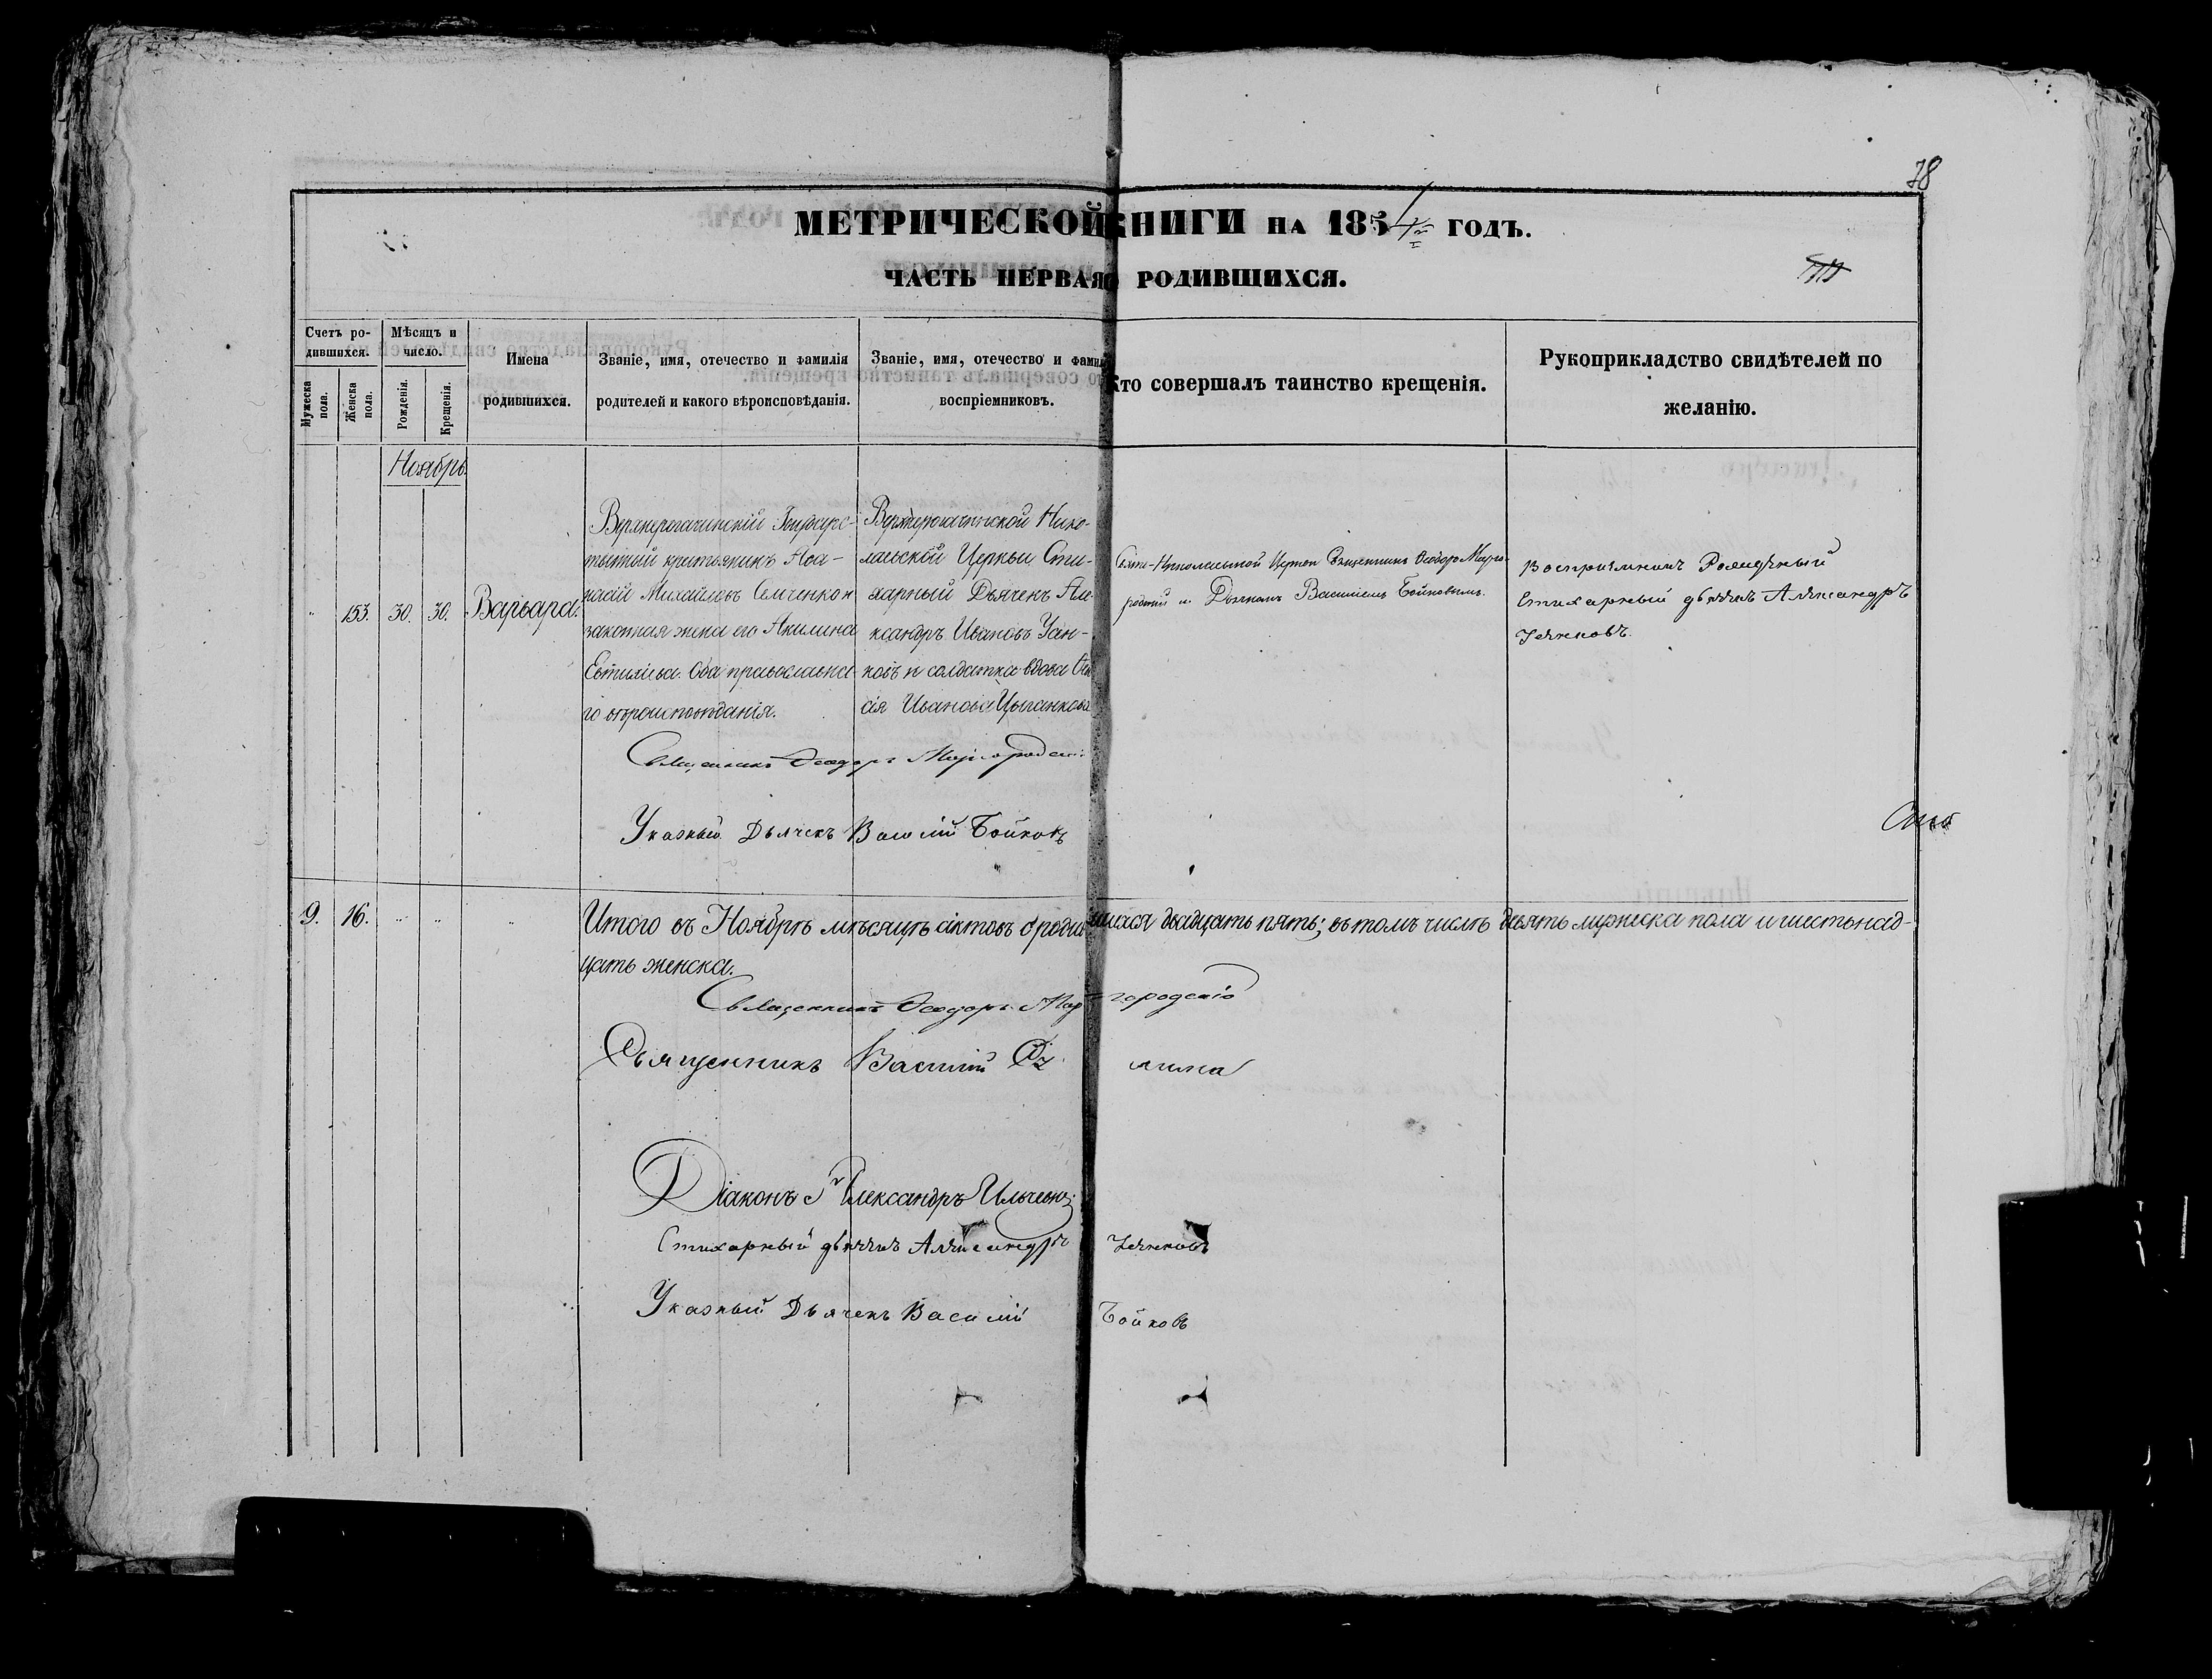 78
МЕТРИЧЕСКОЙ КНИГИ НА 1854й ГОДЪ.
ЧАСТЬ ПЕРВАЯ О РОДИВШИХСЯ.
Счетъ родившихся.
Мужеска пола.
Женска пола.
Мѣсяцъ и число.
Рожденія.
Крещенія.
Имена родившихся.
Званіе, имя, отечество и фамилія
родителей и какого вѣроисповѣданія.
Званіе, имя, отечество и фамилія
воспріемниковъ.
Кто совершалъ таинство крещенія.
Рукоприкладство свидѣтелей по
желанію.
Ноябрь.
153. 30. 30. Варвара.
Верхнерогачинскій Государс-
твенный крестьянинъ Аѳа-
насій Михайловъ Семченко и
законная жена его Акилина
Евтихіева. Оба православна-
го вѣроисповѣданія.
Верхнерогачинской Нико-
лаевской Церкви Сти-
харный Дьячекъ Але-
ксандръ Ивановъ
и солдатка вдова
Иванова Цыганкова
Свято-Николаевской Церкви Священникъ Ѳеодоръ Мирго-
родскій и Дьячкомъ Василіемъ Бойковымъ.
Воспріемникъ
Стихарный дьячекъ Александръ
Священникъ Ѳеодоръ Миргородскій
Указный Дьячекъ Василій Бойковъ
9. 16. Итого въ Ноябрѣ мѣсяцѣ актовъ о родившихся двадцать пять; въ томъ числѣ девять мужеска пола и шестьнад-
цать женска.
Священникъ Ѳеодоръ Миргородскій
Священникъ Василій
Діаконъ Александръ Ильченко
Стихарный дьячекъ Александръ
Указный Дьячекъ Василій Бойковъ